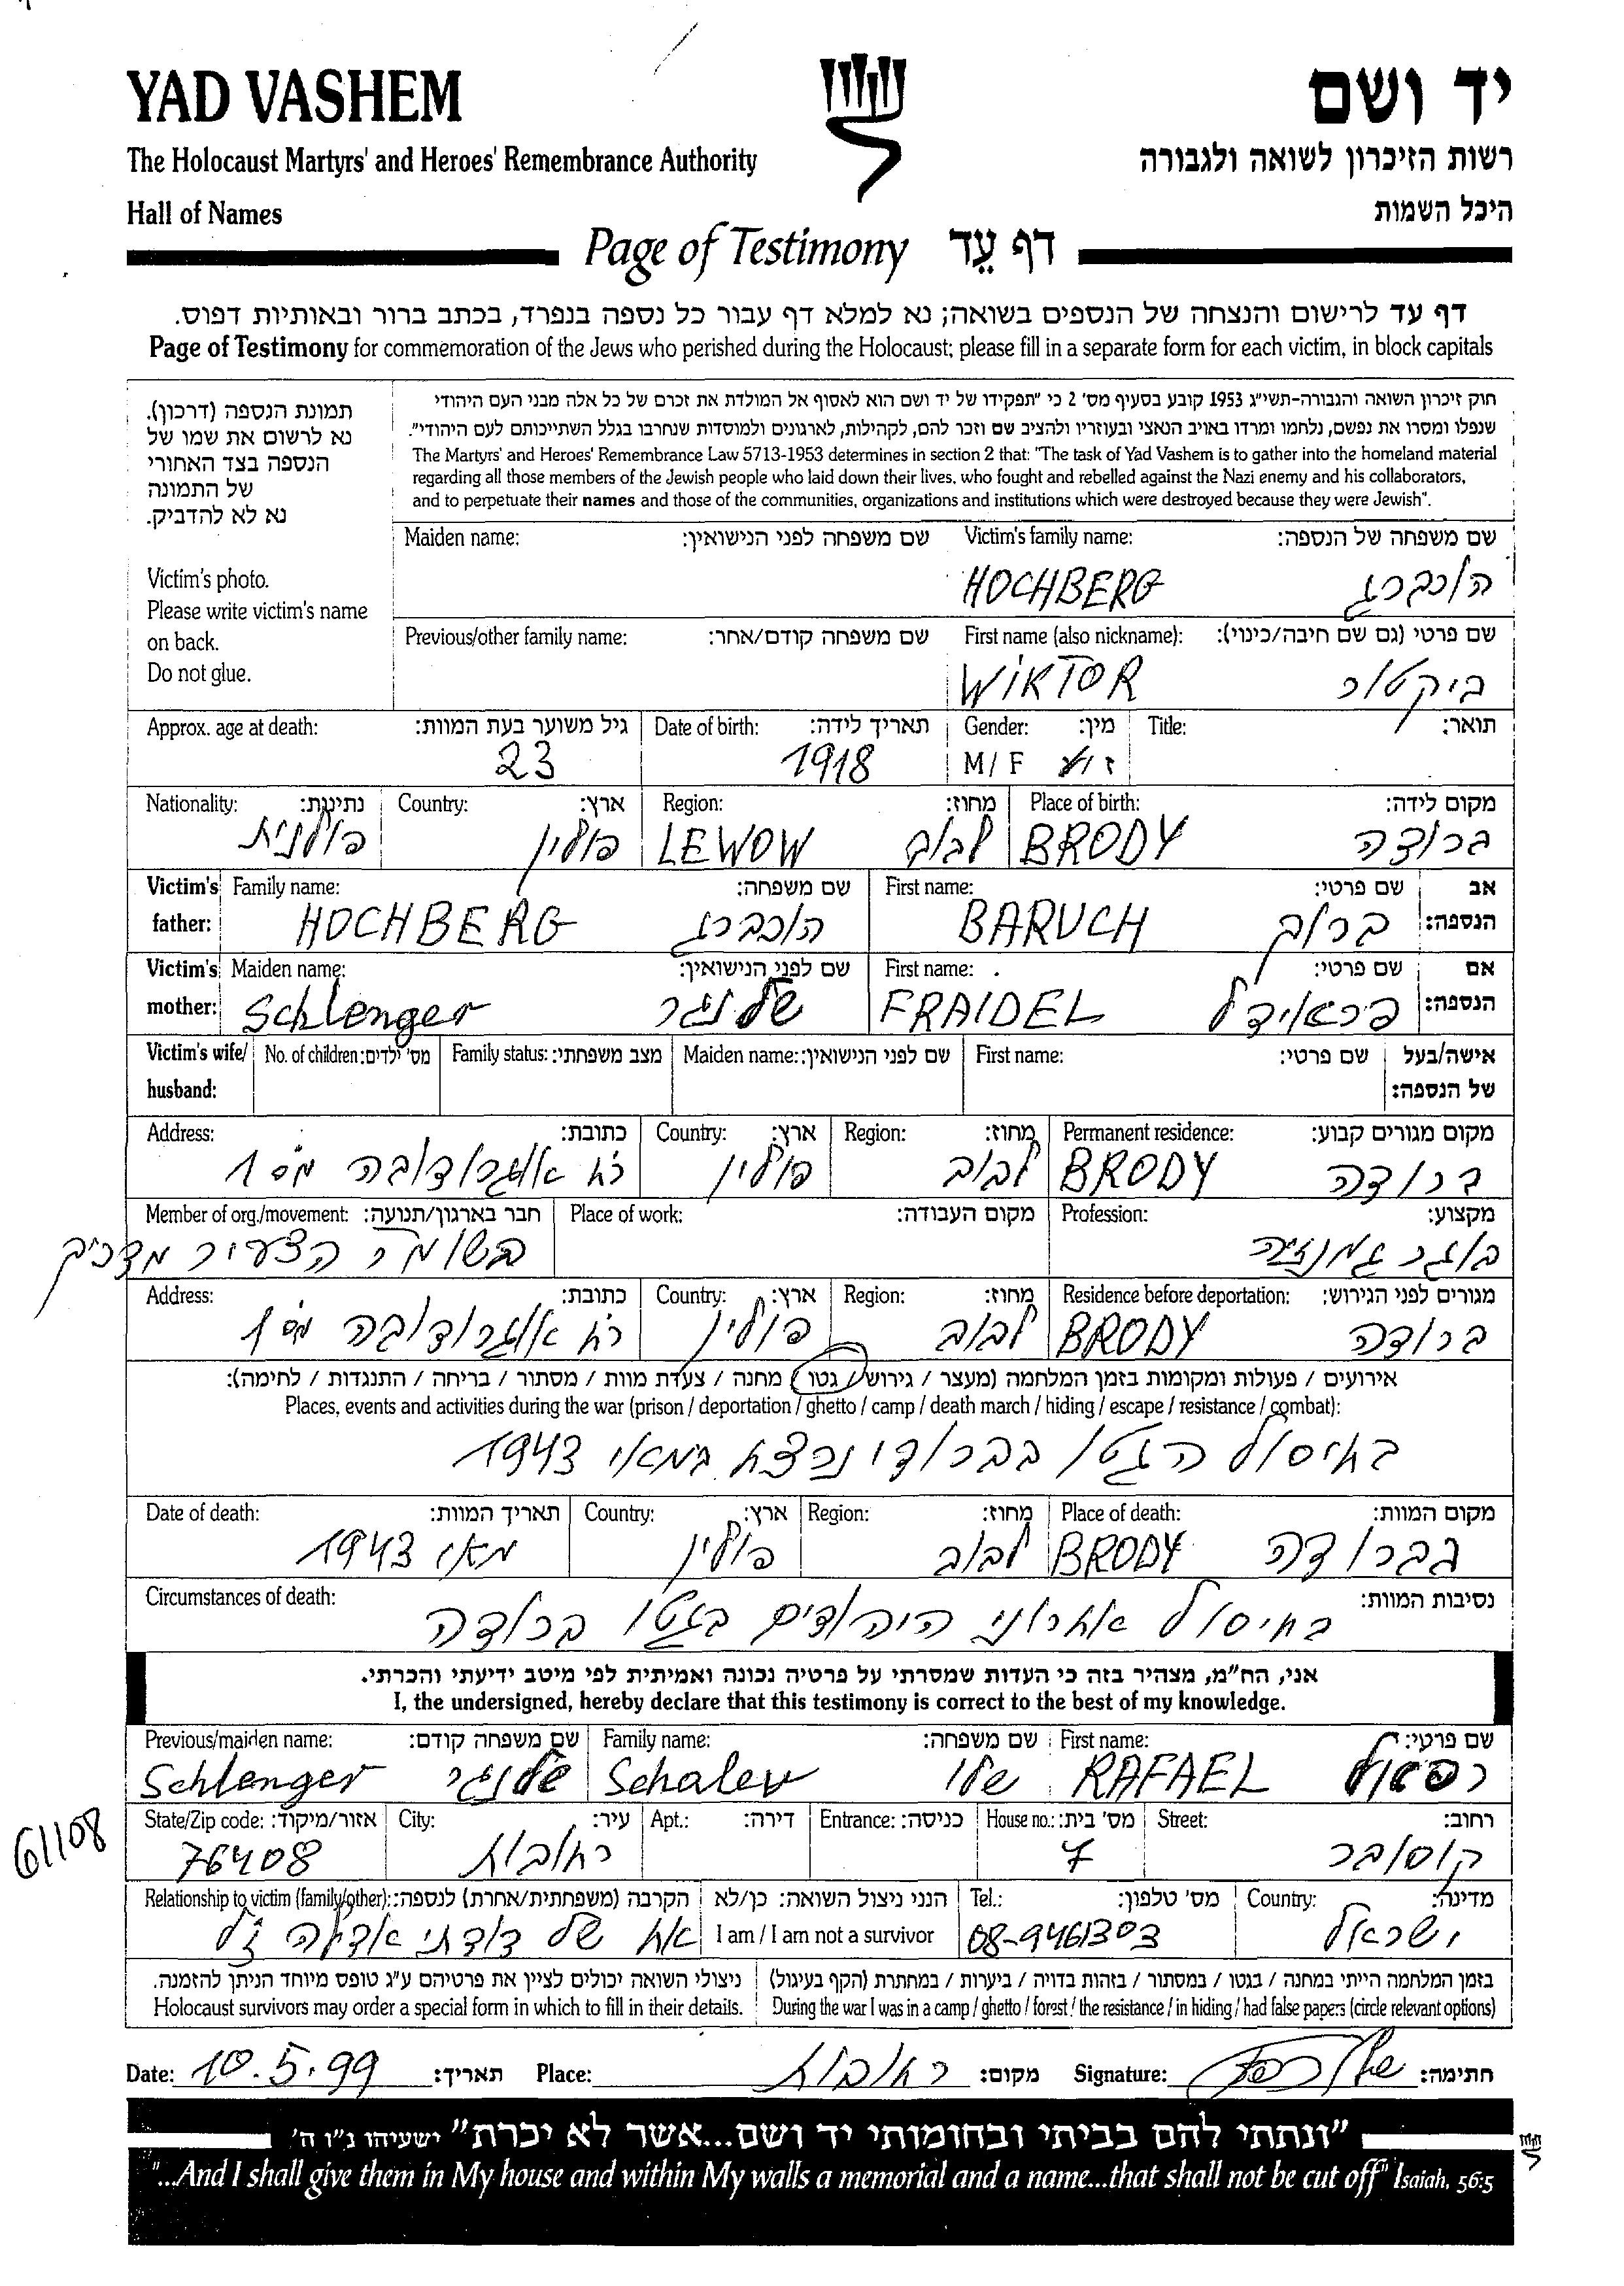 YAD VASHEM
יד ושם
The Holocaust Martyrs' and Heroes' Remembrance Authority
רשות הזיכרון לשואה ולגבורה
Hall of Names
היכל השמות
Page of Testimony דף עֵד
דף עד לרישום והנצחה של הנספים בשואה; נא למלא דף עבור כל נספה בנפרד, בכתב ברור ובאותיות דפוס.
Page of Testimony for commemoration of the Jews who perished during the Holocaust; please fill in a separate form for each victim, in block capitals
תמונת הנספה (דרכון).
נא לרשום את שמו של
הנספה בצד האחורי
של התמונה
נא לא להדביק.
Victim's photo.
Please write victim's name
on back.
Do not glue.
חוק זיכרון השואה והגבורה-תשי"ג 1953 קובע בסעיף מס' 2 כי "תפקידו של יד ושם הוא לאסוף אל המולדת את זכרם של כל אלה מבני העם היהודי
שנפלו ומסרו את נפשם, נלחמו ומרדו באויב הנאצי ובעוזריו ולהציב שם וזכר להם, לקהילות, לארגונים ולמוסדות שנחרבו בגלל השתייכותם לעם היהודי".
The Martyrs' and Heroes' Remembrance Law 5713-1953 determines in section 2 that: "The task of Yad Vashem is to gather into the homeland material
regarding all those members of the Jewish people who laid down their lives, who fought and rebelled against the Nazi enemy and his collaborators,
and to perpetuate their names and those of the communities, organizations and institutions which were destroyed because they were Jewish".
Maiden name: שם משפחה לפני הנישואין: Victim's family name: שם משפחה של הנספה:
HOCHBERG הוכברג
Previous/other family name: שם משפחה קודם/אחר: First name (also nickname): שם פרטי (גם שם חיבה/כינוי):
WIKTOR ויקטור
Approx. age at death: גיל משוער בעת המוות: Date of birth: תאריך לידה: Gender: מין: Title: תואר:
23 1918 M / F ז /
Nationality: נתינות: Country: ארץ: Region: מחוז: Place of birth: מקום לידה:
פולנית פולין LEWOW לבוב BRODY ברודה
Victim's father: Family name: שם משפחה: First name: שם פרטי: אב הנספה:
HOCHBERG הוכברג BARUCH ברוך
Victim's mother: Maiden name: שם לפני הנישואין: First name: שם פרטי: אם הנספה:
Schlenger שלנגר FRAIDEL פראידל
Victim's wife/ husband: No. of children: מס' ילדים: Family status: מצב משפחתי: Maiden name: שם לפני הנישואין: First name: שם פרטי: אישה/בעל של הנספה:
Address: כתובת: Country: ארץ: Region: מחוז: Permanent residence: מקום מגורים קבוע:
רח אוגרודובה מס 1 פולין לבוב BRODY ברודה
Member of org./movement: חבר בארגון/תנועה: Place of work: מקום העבודה: Profession: מקצוע:
בשומר הצעיר מדריך בוגר גמנזיה
Address: כתובת: Country: ארץ: Region: מחוז: Residence before deportation: מגורים לפני הגירוש:
רח אוגרודובה מס 1 פולין לבוב BRODY ברודה
אירועים / פעולות ומקומות בזמן המלחמה (מעצר / גירוש / גטו / מחנה / צעדת מוות / מסתור / בריחה / התנגדות / לחימה):
Places, events and activities during the war (prison / deportation / ghetto / camp / death march / hiding / escape / resistance / combat):
בחיסול הגטו בברודי נרצח במאי 1943
Date of death: תאריך המוות: Country: ארץ: Region: מחוז: Place of death: מקום המוות:
מאי 1943 פולין לבוב BRODY בברודה
Circumstances of death: נסיבות המוות:
בחיסול אחרוני היהודים בגטו ברודה
אני, הח"מ, מצהיר בזה כי העדות שמסרתי על פרטיה נכונה ואמיתית לפי מיטב ידיעתי והכרתי.
I, the undersigned, hereby declare that this testimony is correct to the best of my knowledge.
Previous/maiden name: שם משפחה קודם: Family name: שם משפחה: First name: שם פרטי:
Schlenger שלנגר Schalev שלו RAFAEL רפאל
State/Zip code: אזור/מיקוד: City: עיר: Apt.: דירה: Entrance: כניסה: House no.: מס' בית: Street: רחוב:
61108
76408 רחובות 7 קוסובר
Relationship to victim (family/other): הקרבה (משפחתית/אחרת) לנספה: הנני ניצול השואה: כן/לא Tel.: מס' טלפון: Country: מדינה:
אח של דודתי אדלה ז"ל I am / I am not a survivor 08-9461303 ישראל
ניצולי השואה יכולים לציין את פרטיהם ע"ג טופס מיוחד הניתן להזמנה. בזמן המלחמה הייתי במחנה / בגטו / במסתור / בזהות בדויה / ביערות / במחתרת (הקף בעיגול)
Holocaust survivors may order a special form in which to fill in their details. During the war I was in a camp / ghetto / forest / the resistance / in hiding / had false papers (circle relevant options)
Date: 10.5.99 תאריך: Place: רחובות מקום: Signature: חתימה:
"ונתתי להם בביתי ובחומותי יד ושם...אשר לא יכרת" ישעיהו נ"ו ה'
"...And I shall give them in My house and within My walls a memorial and a name...that shall not be cut off" Isaiah, 56:5